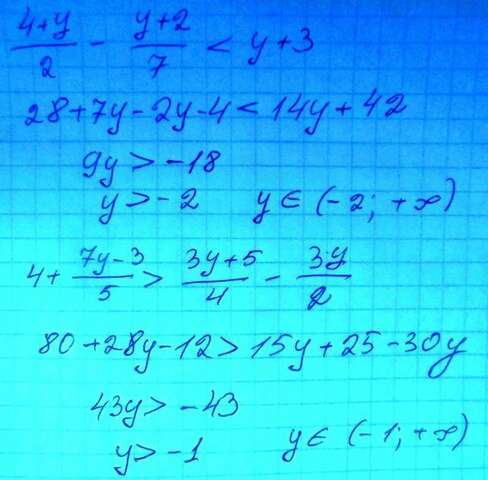 (4+y)/2 - (y+2)/7 < y+3
28+7y-2y-4 < 14y+42
9y > -18
y > -2 y ∈ (-2; +∞)
4+ (7y-3)/5 > (3y+5)/4 - (3·y)/2
80+28y-12 > 15y+25-30y
43y > -43
y > -1 y ∈ (-1; +∞)